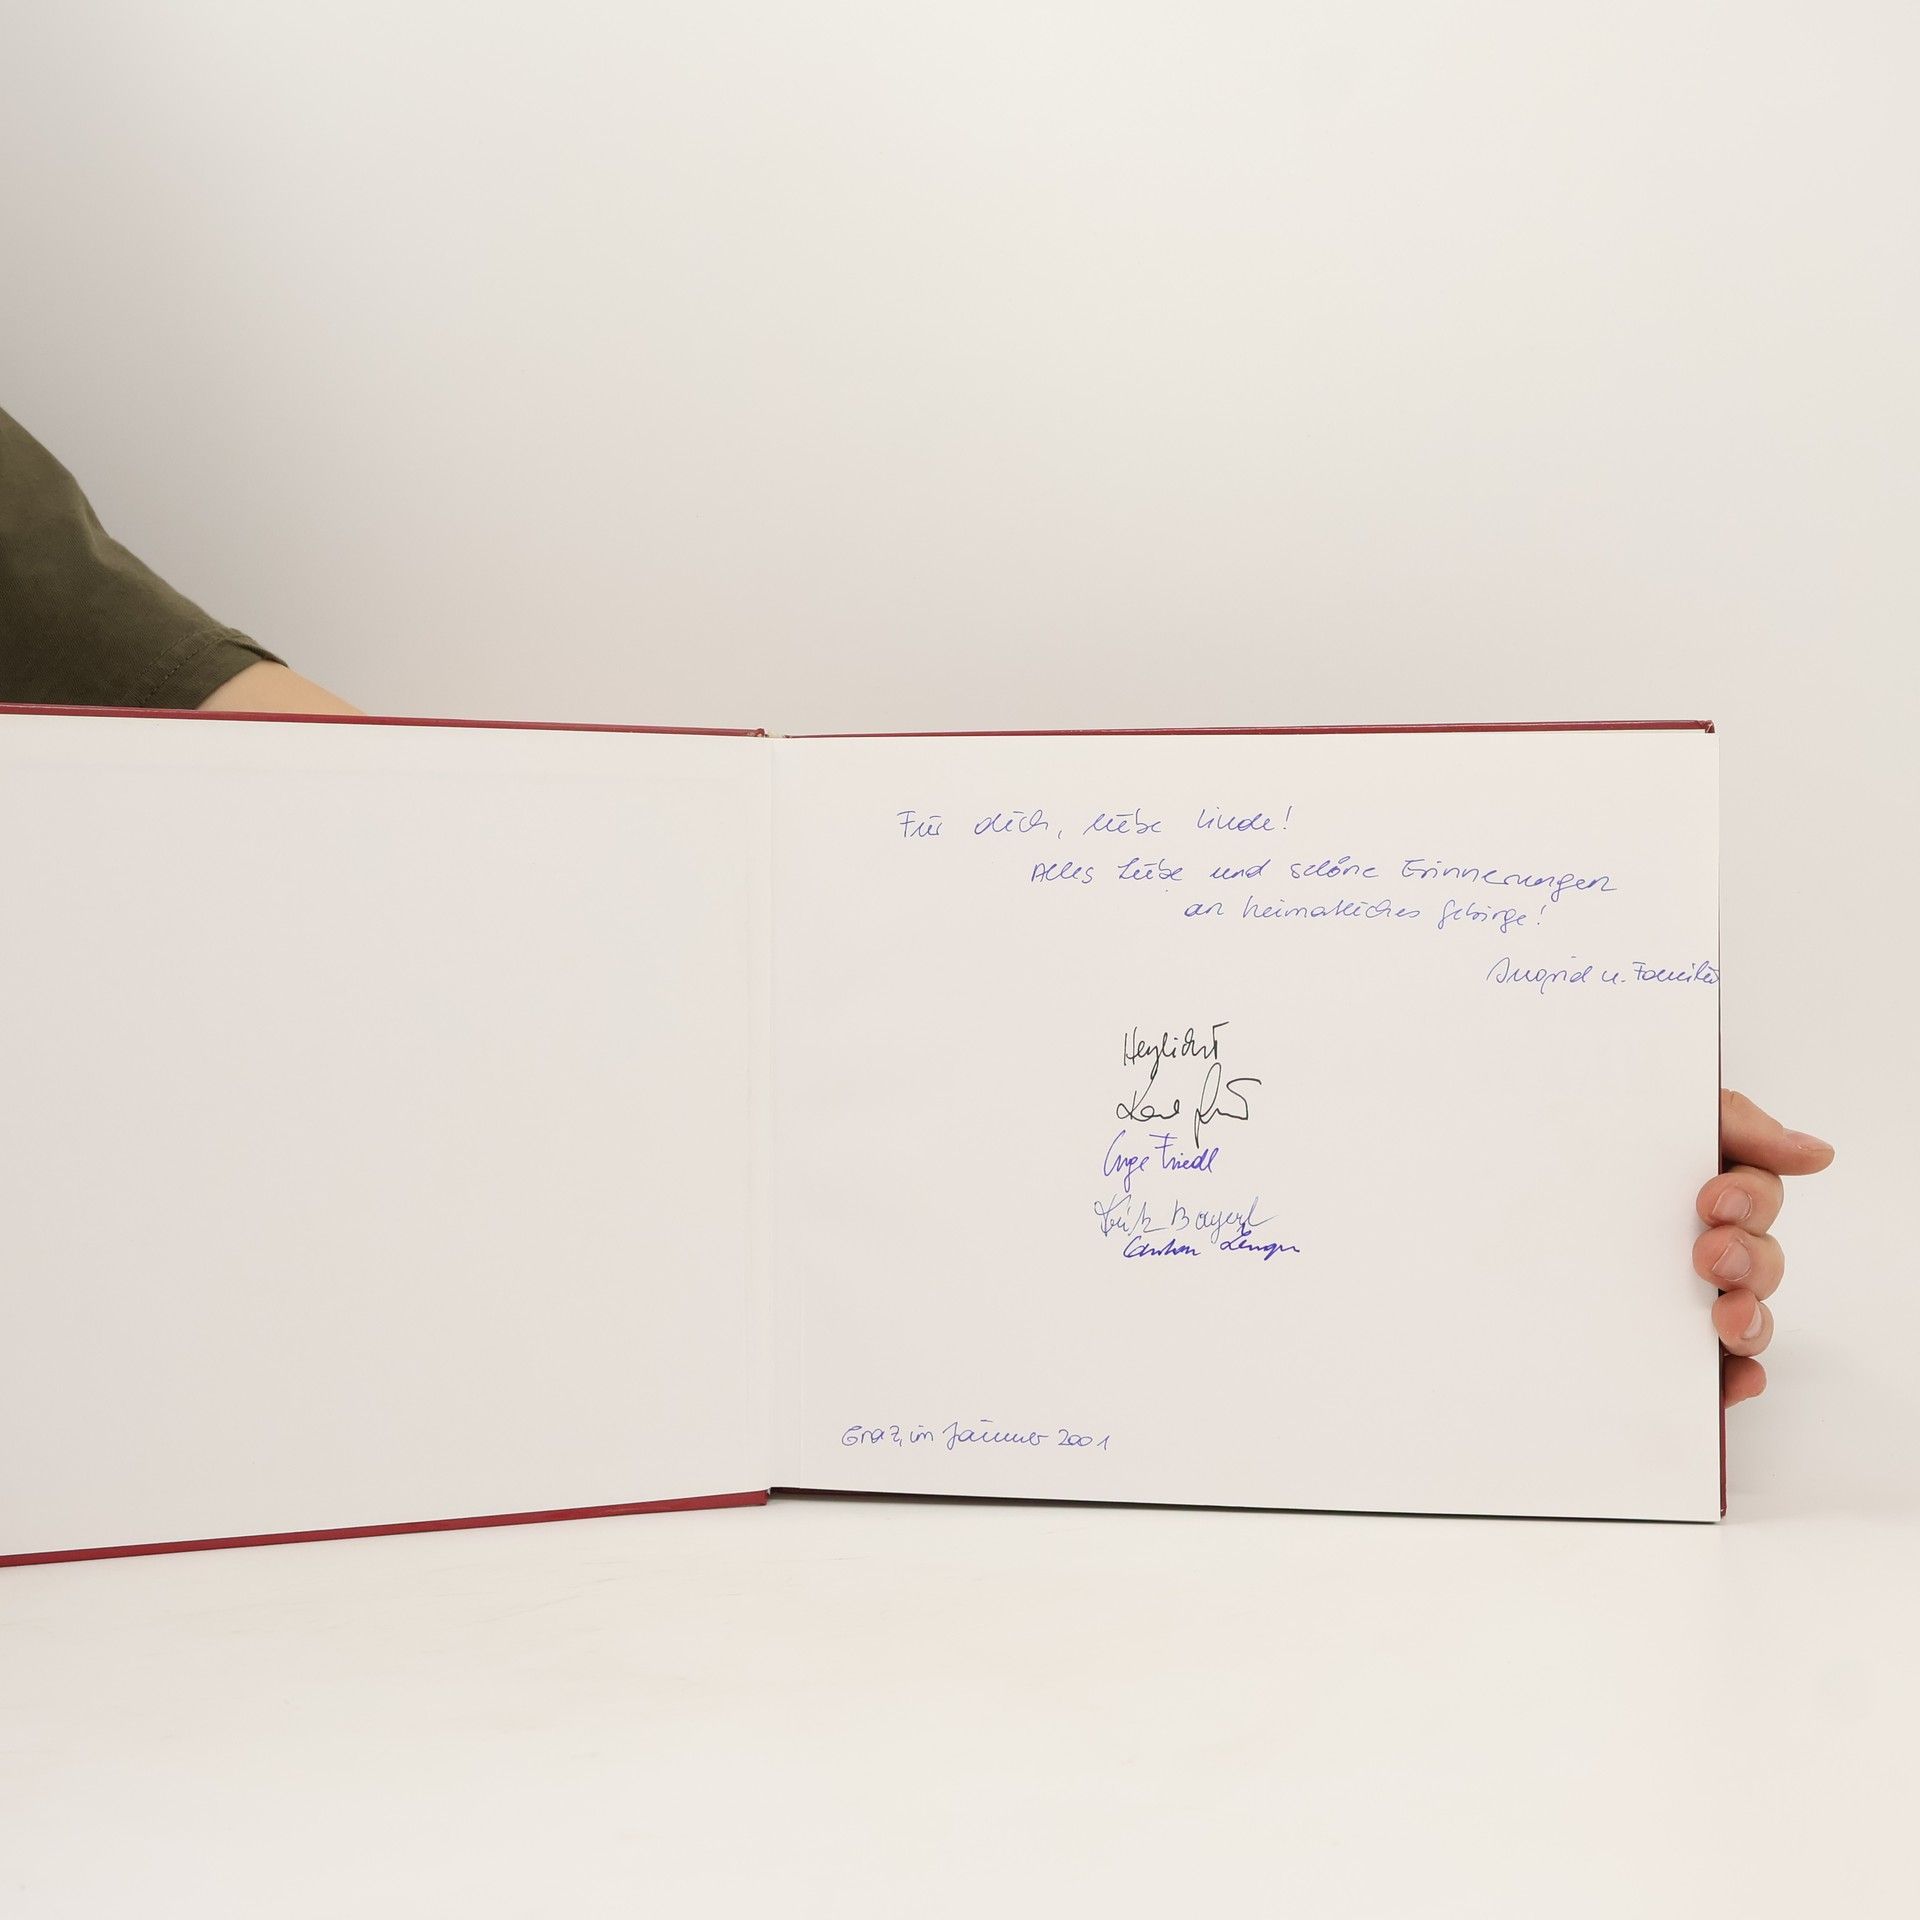 Für dich, liebe Linde!
Alles Liebe und schöne Erinnerungen
an heimatliches Gebirge!
Ingrid u. Familie
Herzlichst
Karl
Inge Friedl
Fritz Bayerl
Graz, im Jänner 2001